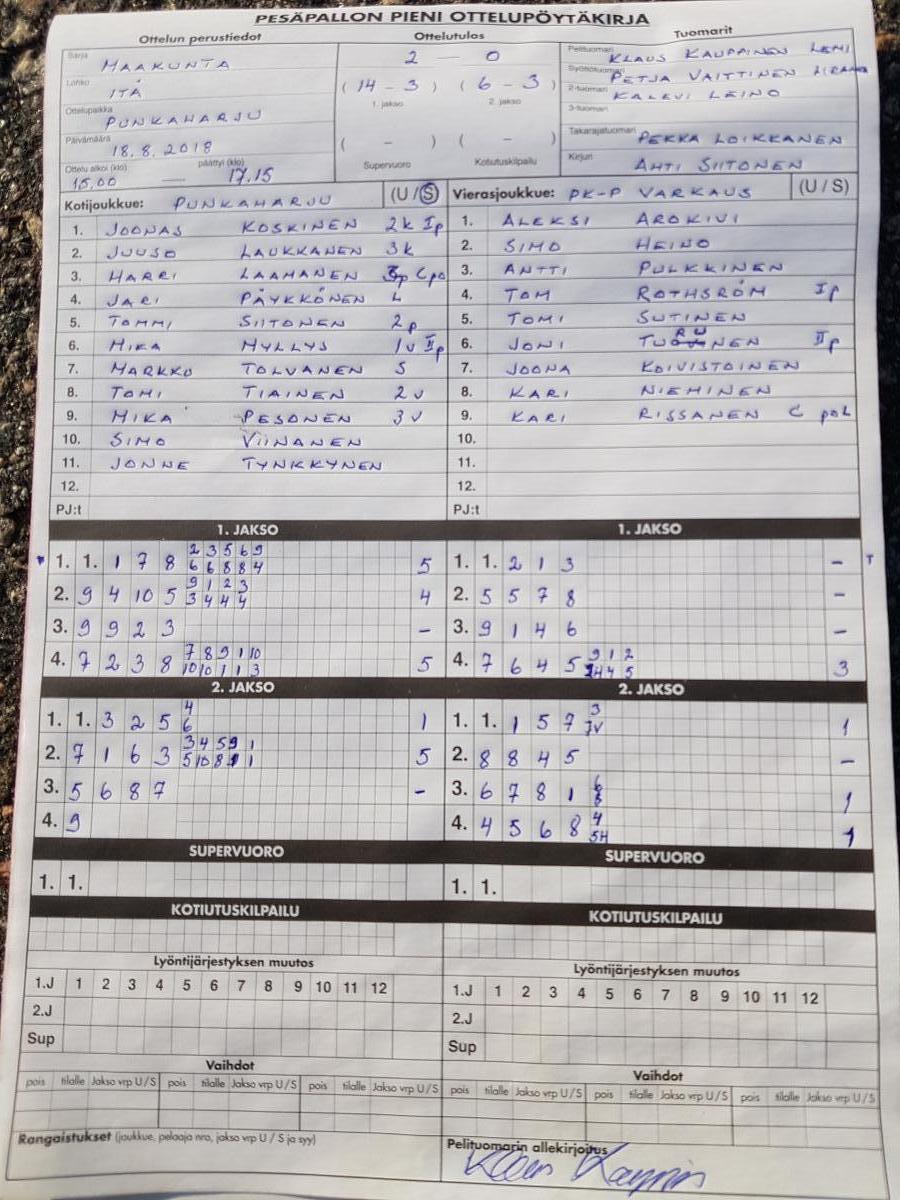 PESÄPALLON PIENI OTTELUPÖYTÄKIRJA
Ottelun perustiedot Ottelutulos Tuomarit
Sarja MAAKUNTA
Lohko ITÄ
Ottelupaikka PUNKAHARJU
Päivämäärä 18.8.2018
Ottelu alkoi (klo) päättyi (klo)
15.00 17.15
2 — 0
(14 - 3) (6 - 3)
1. jakso 2. jakso
( - ) ( - )
Supervuoro Kotiutuskilpailu
Pelituomari KLAUS KAUPPINEN LEMI
Syöttötuomari PETJA VAITTINEN
2-tuomari KALEVI LEINO
3-tuomari
Takarajatuomari PEKKA LOIKKANEN
Kirjuri AHTI SIITONEN
Kotijoukkue: PUNKAHARJU (U / S) Vierasjoukkue: PK-P VARKAUS (U / S)
1. JOONAS KOSKINEN 2k Ip 1. ALEKSI AROKIVI
2. JUUSO LAUKKANEN 3k 2. SIMO HEINO
3. HARRI LAAMANEN Cpo 3. ANTTI PULKKINEN
4. JARI PÄYKKÖNEN L 4. TOM ROTHSRÖM Ip
5. TOMMI SIITONEN 2p 5. TOMI SUTINEN
6. MIKA MYLLYS 1v IIp 6. JONI IIp
7. MARKKO TOLVANEN S 7. JOONA KOIVISTOINEN
8. TOMI TIAINEN 2v 8. KARI NIEMINEN
9. MIKA PESONEN 3v 9. KARI RISSANEN C pol
10. SIMO VIINANEN 10.
11. JONNE TYNKKYNEN 11.
12. 12.
PJ:t PJ:t
1. JAKSO 1. JAKSO
2 3 5 6 9
1. 1. 1 7 8 6 6 8 8 4 5 1. 1. 2 1 3 - T
9 1 2 3
2. 9 4 10 5 3 4 4 4 4 2. 5 5 7 8 -
3. 9 9 2 3 - 3. 9 1 4 6 -
7 8 9 1 10 9 1 2
4. 7 2 3 8 10 10 1 1 3 5 4. 7 6 4 5 4 5 3
2. JAKSO 2. JAKSO
4 3
1. 1. 3 2 5 6 1 1. 1. 1 5 7 1
3 4 5 9 1
2. 7 1 6 3 5 10 8 1 1 5 2. 8 8 4 5 -
3. 5 6 8 7 - 3. 6 7 8 1 1
4
4. 9 4. 4 5 6 8 5H 1
SUPERVUORO SUPERVUORO
1. 1. 1. 1.
KOTIUTUSKILPAILU KOTIUTUSKILPAILU
Lyöntijärjestyksen muutos Lyöntijärjestyksen muutos
1.J 1 2 3 4 5 6 7 8 9 10 11 12 1.J 1 2 3 4 5 6 7 8 9 10 11 12
2.J 2.J
Sup Sup
Vaihdot Vaihdot
pois tilalle Jakso vrp U / S pois tilalle Jakso vrp U / S pois tilalle Jakso vrp U / S pois tilalle Jakso vrp U / S pois tilalle Jakso vrp U / S pois tilalle Jakso vrp U / S
Rangaistukset (joukkue, pelaaja nro, jakso vrp U / S ja syy) Pelituomarin allekirjoitus